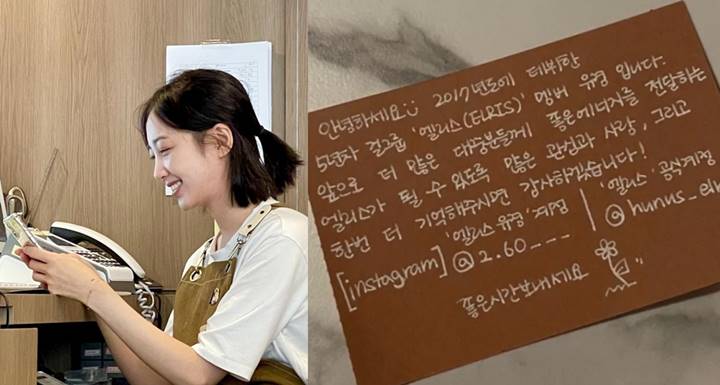 안녕하세요 2017년도에 데뷔한
5년차 걸그룹 '엘리스(ELRIS)' 멤버 유경 입니다.
앞으로 더 많은 대중분들께 좋은에너지를 전달하는
엘리스가 될 수 있도록 많은 관심과 사랑, 그리고
한번 더 기억해주시면 감사하겠습니다!
'엘리스 유경' 계정 | '엘리스' 공식계정
[instagram] @2.60___ | @hunus_el
좋은시간보내세요